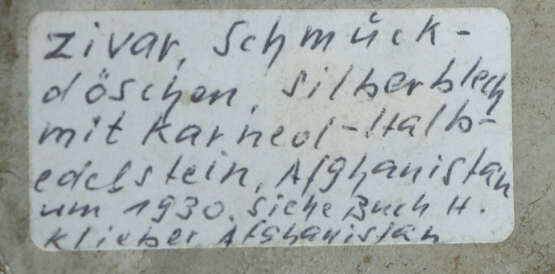 Zivar, Schmuck-
döschen, Silberblech
mit Karneol-Halb-
edelstein, Afghanistan
um 1930. Siehe Buch H.
Klieber Afghanistan